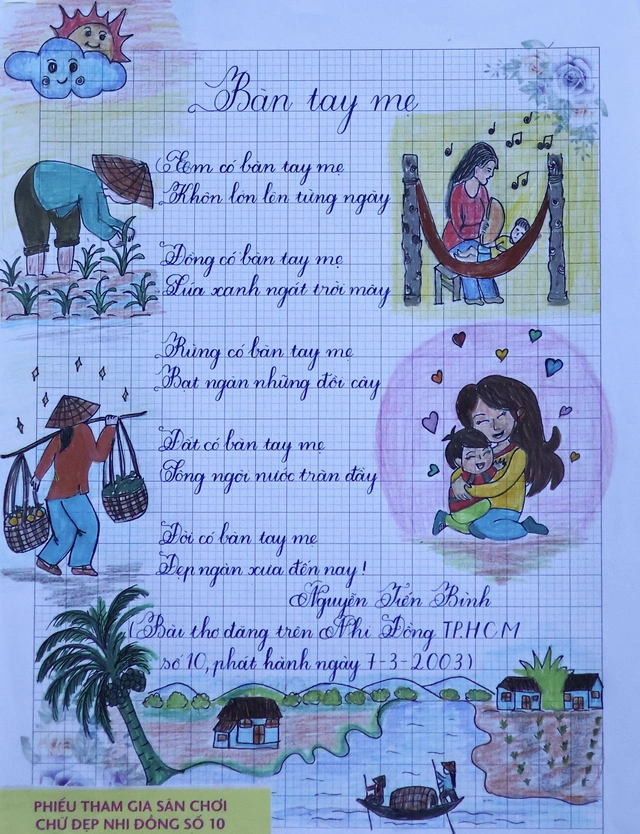 Bàn tay mẹ
Em có bàn tay mẹ
Khôn lớn lên từng ngày
Đồng có bàn tay mẹ
Lúa xanh ngát trời mây
Rừng có bàn tay mẹ
Bạt ngàn những đồi cây
Đất có bàn tay mẹ
Sông ngòi nước tràn đầy
Đời có bàn tay mẹ
Đẹp ngàn xưa đến nay!
Nguyễn Tiến Bình
(Bài thơ đăng trên Nhi Đồng TP.HCM
số 10, phát hành ngày 7-3-2003)
PHIẾU THAM GIA SÂN CHƠI
CHỮ ĐẸP NHI ĐỒNG SỐ 10